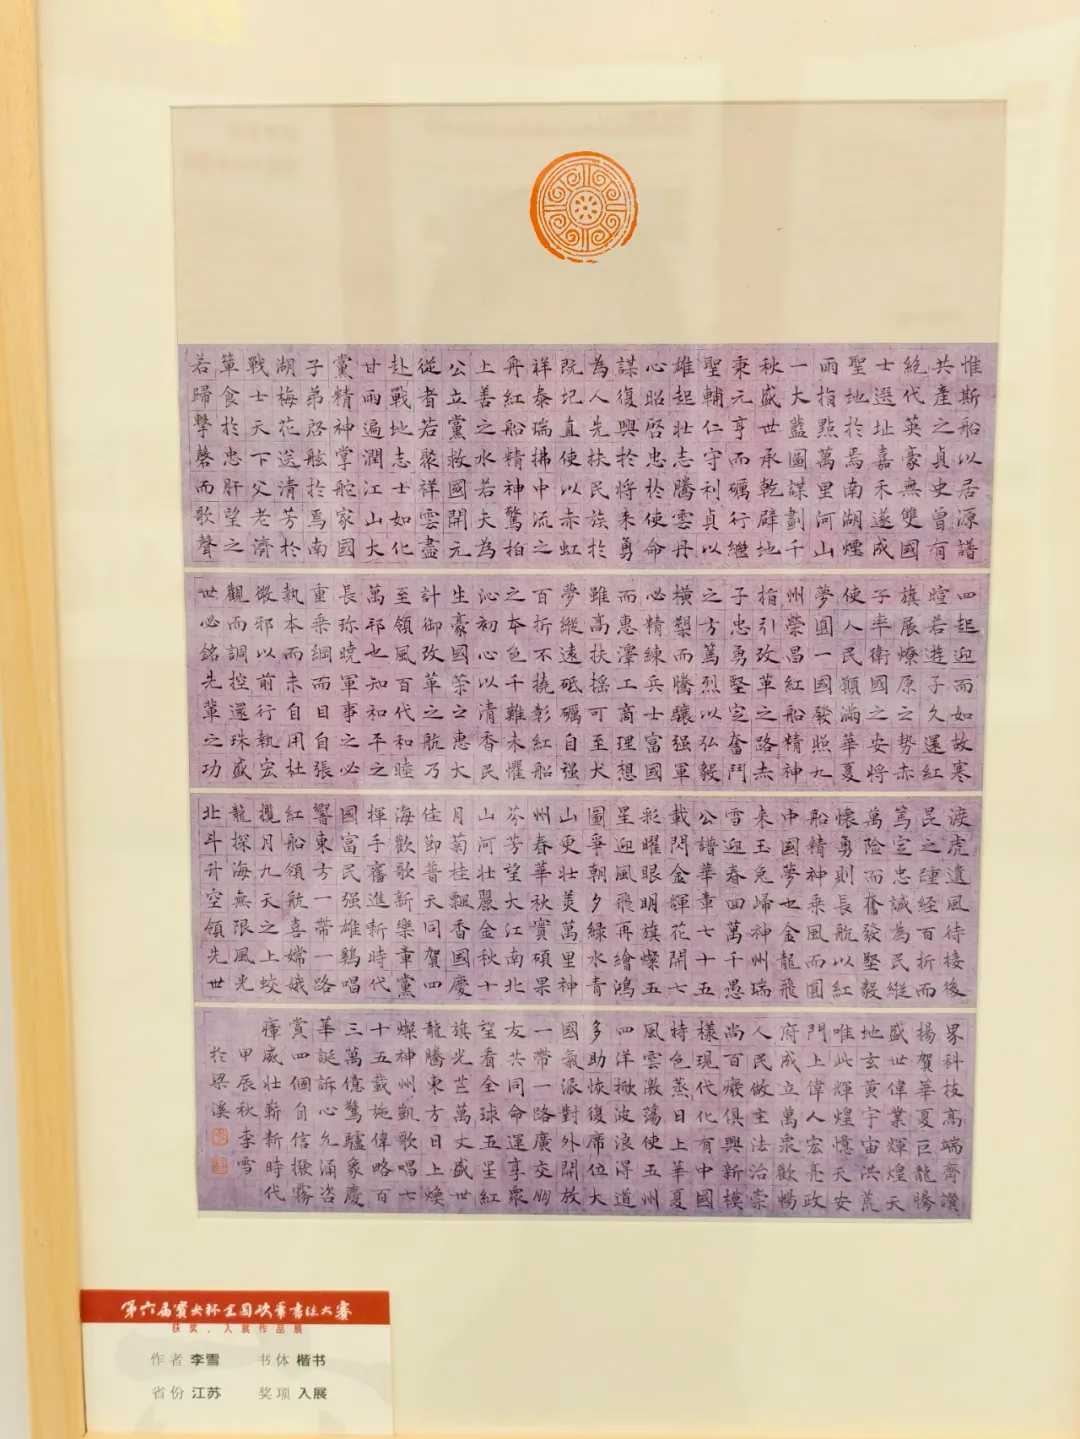 惟斯船以居源譜
共產之貞史曾有
絕代英豪無雙國
士選址嘉禾遂成
聖地於焉南湖煙
雨指點萬里河山
一大藍圖謀劃千
秋盛世承乾辟地
秉元亨而礪行繼
聖輔仁守利貞以
雄起壯志騰雲丹
心昭啓忠於使命
謀復興於將來勇
為人先扶民族於
院圮直使以赤虹
祥泰瑞拂中流之
舟紅船精神驚柏
上善之水若夫為
公立黨救國開元
從者若聚祥雲盡
赴戰地志士如化
甘雨遍潤江山大
黨精神掌舵家國
子弟啓舷於焉南
湖梅花送清芳於
戰士天下父老濟
簞食於忠肝望之
若歸擊磬而歌聲
四起迎而如故寒
暄若遊子久還紅
旗展燎原云勢赤
子率衛國之安將
使人民顙滿華夏
夢圓一國發照九
州榮昌紅船精神
指引改革之路赤
子忠勇堅定奮鬥
之方篤烈以弘毅
橫槊而騰驤强軍
必精練兵士富國
而惠澤工商理想
雖高扶搖可至犬
夢縱遠砥礪自强
百折不撓彰紅船
之本色千難未懼
沁初心以清香民
生豪國榮公惠大
計御改革之航乃
至領風百代和睦
萬邦也知和平之
長弥曉軍事之必
重乘綱而目自張
執本而未自用杜
微邪以前行執宏
觀而調控還珠盛
世必銘先輩之功
淚虎遺風待接後
昆之踵經百折而
篤定忠誠為民縱
萬險而奮發堅毅
懷勇則長航以紅
船精神乘風而圓
中國夢也金龍飛
來玉兔歸神州瑞
雪迎春回萬千愚
公譜華章七十五
載問金輝花開七
彩曜眼明旗燦五
星迎風飛再繪鴻
圖爭朝夕綠水青
山更壯美萬里神
州春華秋實碩果
芬芳望大江南北
山河壯麗金秋十
月菊桂飄香國慶
佳節普天同賀四
海歡歌新樂章黨
揮手奮進新時代
國富民强雄鷄唱
響東方一帶一路
紅船領航喜嫦娥
攬月九天之上蛟
龍探海無限風光
北斗升空領先世
界科技高端齊讚
揚賀華夏巨龍騰
盛世偉業輝煌天
地玄黃宇宙洪荒
唯此輝煌憶天安
門上偉人宏亮政
府成立萬眾歡暢
人民做主法治崇
尚百廢俱興新模
樣現代化有中國
特色蒸日上華夏
風雲激蕩使玉州
四洋掀波浪得道
多助恢復席位大
國氣派對外開放
一帶一路廣交朋
友共同命運享眾
望看全球五星紅
旗光芒萬丈盛世
龍騰東方日上煥
燦神州凱歌唱七
十五載施偉略百
三萬億驚驢象慶
華誕訴心允涌咨
賞四個自信撥霧
瘴威壯嶄新時代
甲辰秋李雪
於梁溪
第六届宝央杯全国硬笔书法大赛
获奖、入展作品展
作者 李雪 书体 楷书
省份 江苏 奖项 入展